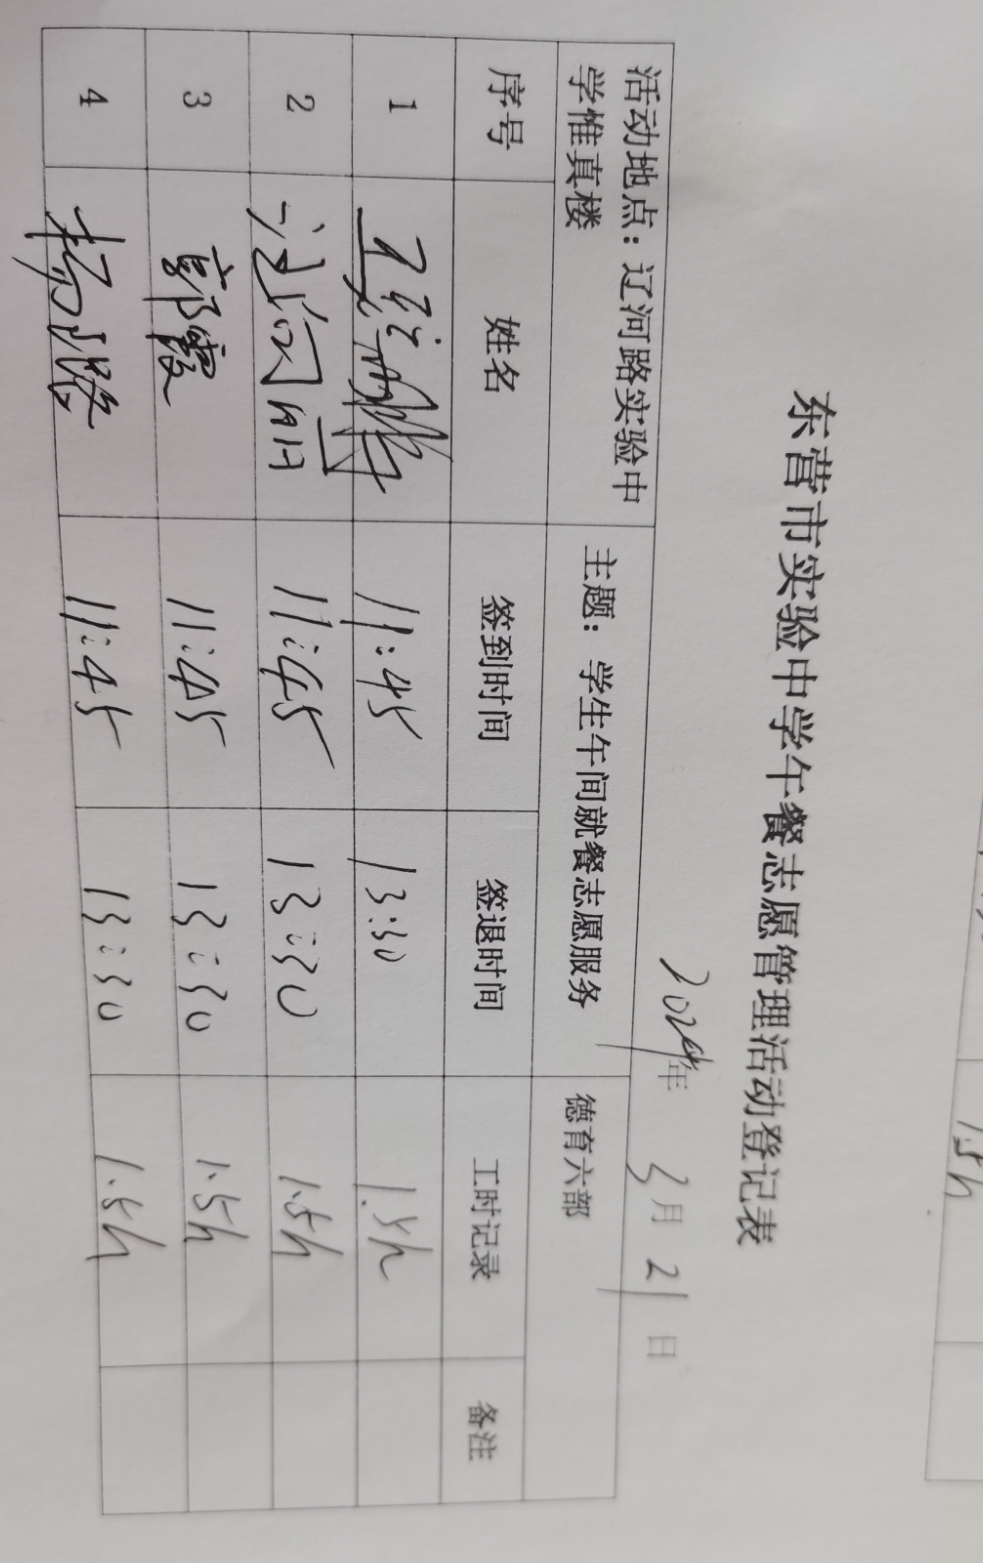 东营市实验中学午餐志愿管理活动登记表
2024年 3月 21日
活动地点：辽河路实验中学惟真楼 主题：学生午间就餐志愿服务 德育六部
序号 姓名 签到时间 签退时间 工时记录 备注
1 11:45 13:30 1.5h
2 11:45 13:30 1.5h
3 郭霞 11:45 13:30 1.5h
4 杨璐 11:45 13:30 1.5h
1.5h